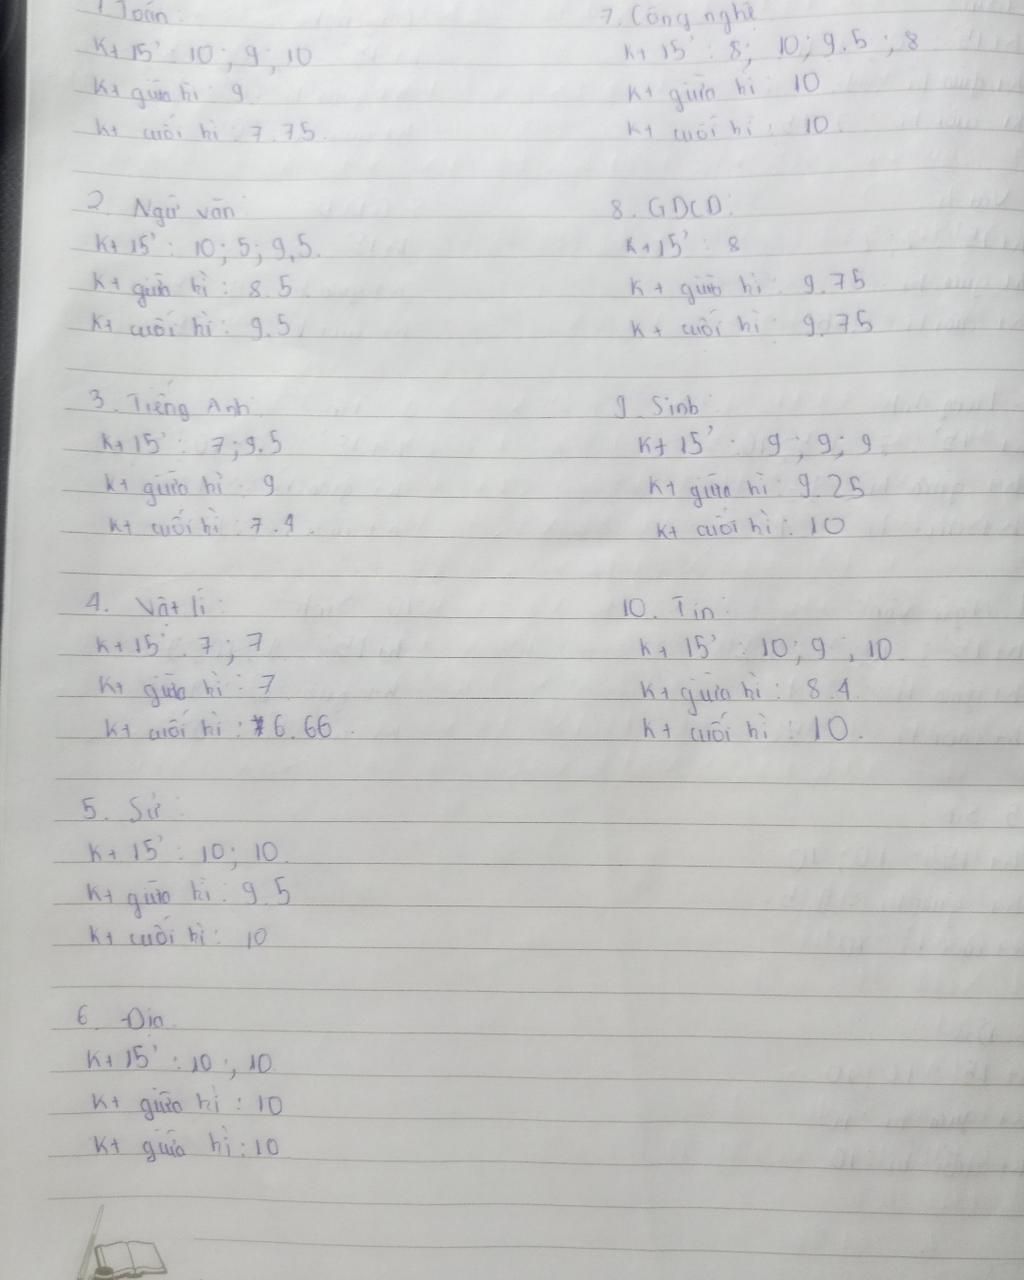 1. Toán:
Kt 15' : 10 ; 9 ; 10
Kt giữa kì : 9
Kt cuối kì : 7.75
2. Ngữ văn
Kt 15' : 10 ; 5 ; 9,5.
Kt giữa kì : 8.5
Kt cuối kì : 9.5
3. Tiếng Anh
Kt 15' : 7 ; 9.5
Kt giữa kì : 9
Kt cuối kì : 7.4
4. Vật lí :
Kt 15' : 7 ; 7
Kt giữa kì : 7
Kt cuối kì : 6.66
5. Sử :
Kt 15' : 10 ; 10
Kt giữa kì : 9.5
Kt cuối kì : 10
6. Địa
Kt 15' : 10 ; 10
Kt giữa kì : 10
Kt giữa kì : 10
7. Công nghệ
Kt 15' : 8 ; 10 ; 9.5 ; 8
Kt giữa kì : 10
Kt cuối kì : 10
8. GDCD :
Kt 15' : 8
Kt giữa kì : 9.75
Kt cuối kì : 9.75
9. Sinh
Kt 15' : 9 ; 9 ; 9
Kt giữa kì : 9.25
Kt cuối kì : 10
10. Tin :
Kt 15' : 10 ; 9 ; 10
Kt giữa kì : 8.4
Kt cuối kì : 10.